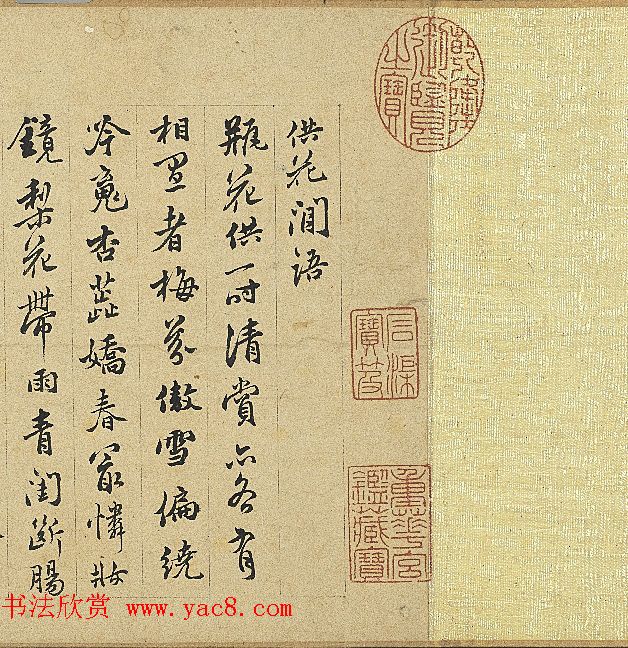 供花閒語
瓶花供一时清賞亦各有
相冝者梅芬傲雪偏繞
吟魂杏蕋嬌春㝡憐妝
鏡梨花帶雨青閨断腸
乾隆御覽之寶
石渠寶笈
重華宮鑑藏寶
书法欣赏 www.yac8.com